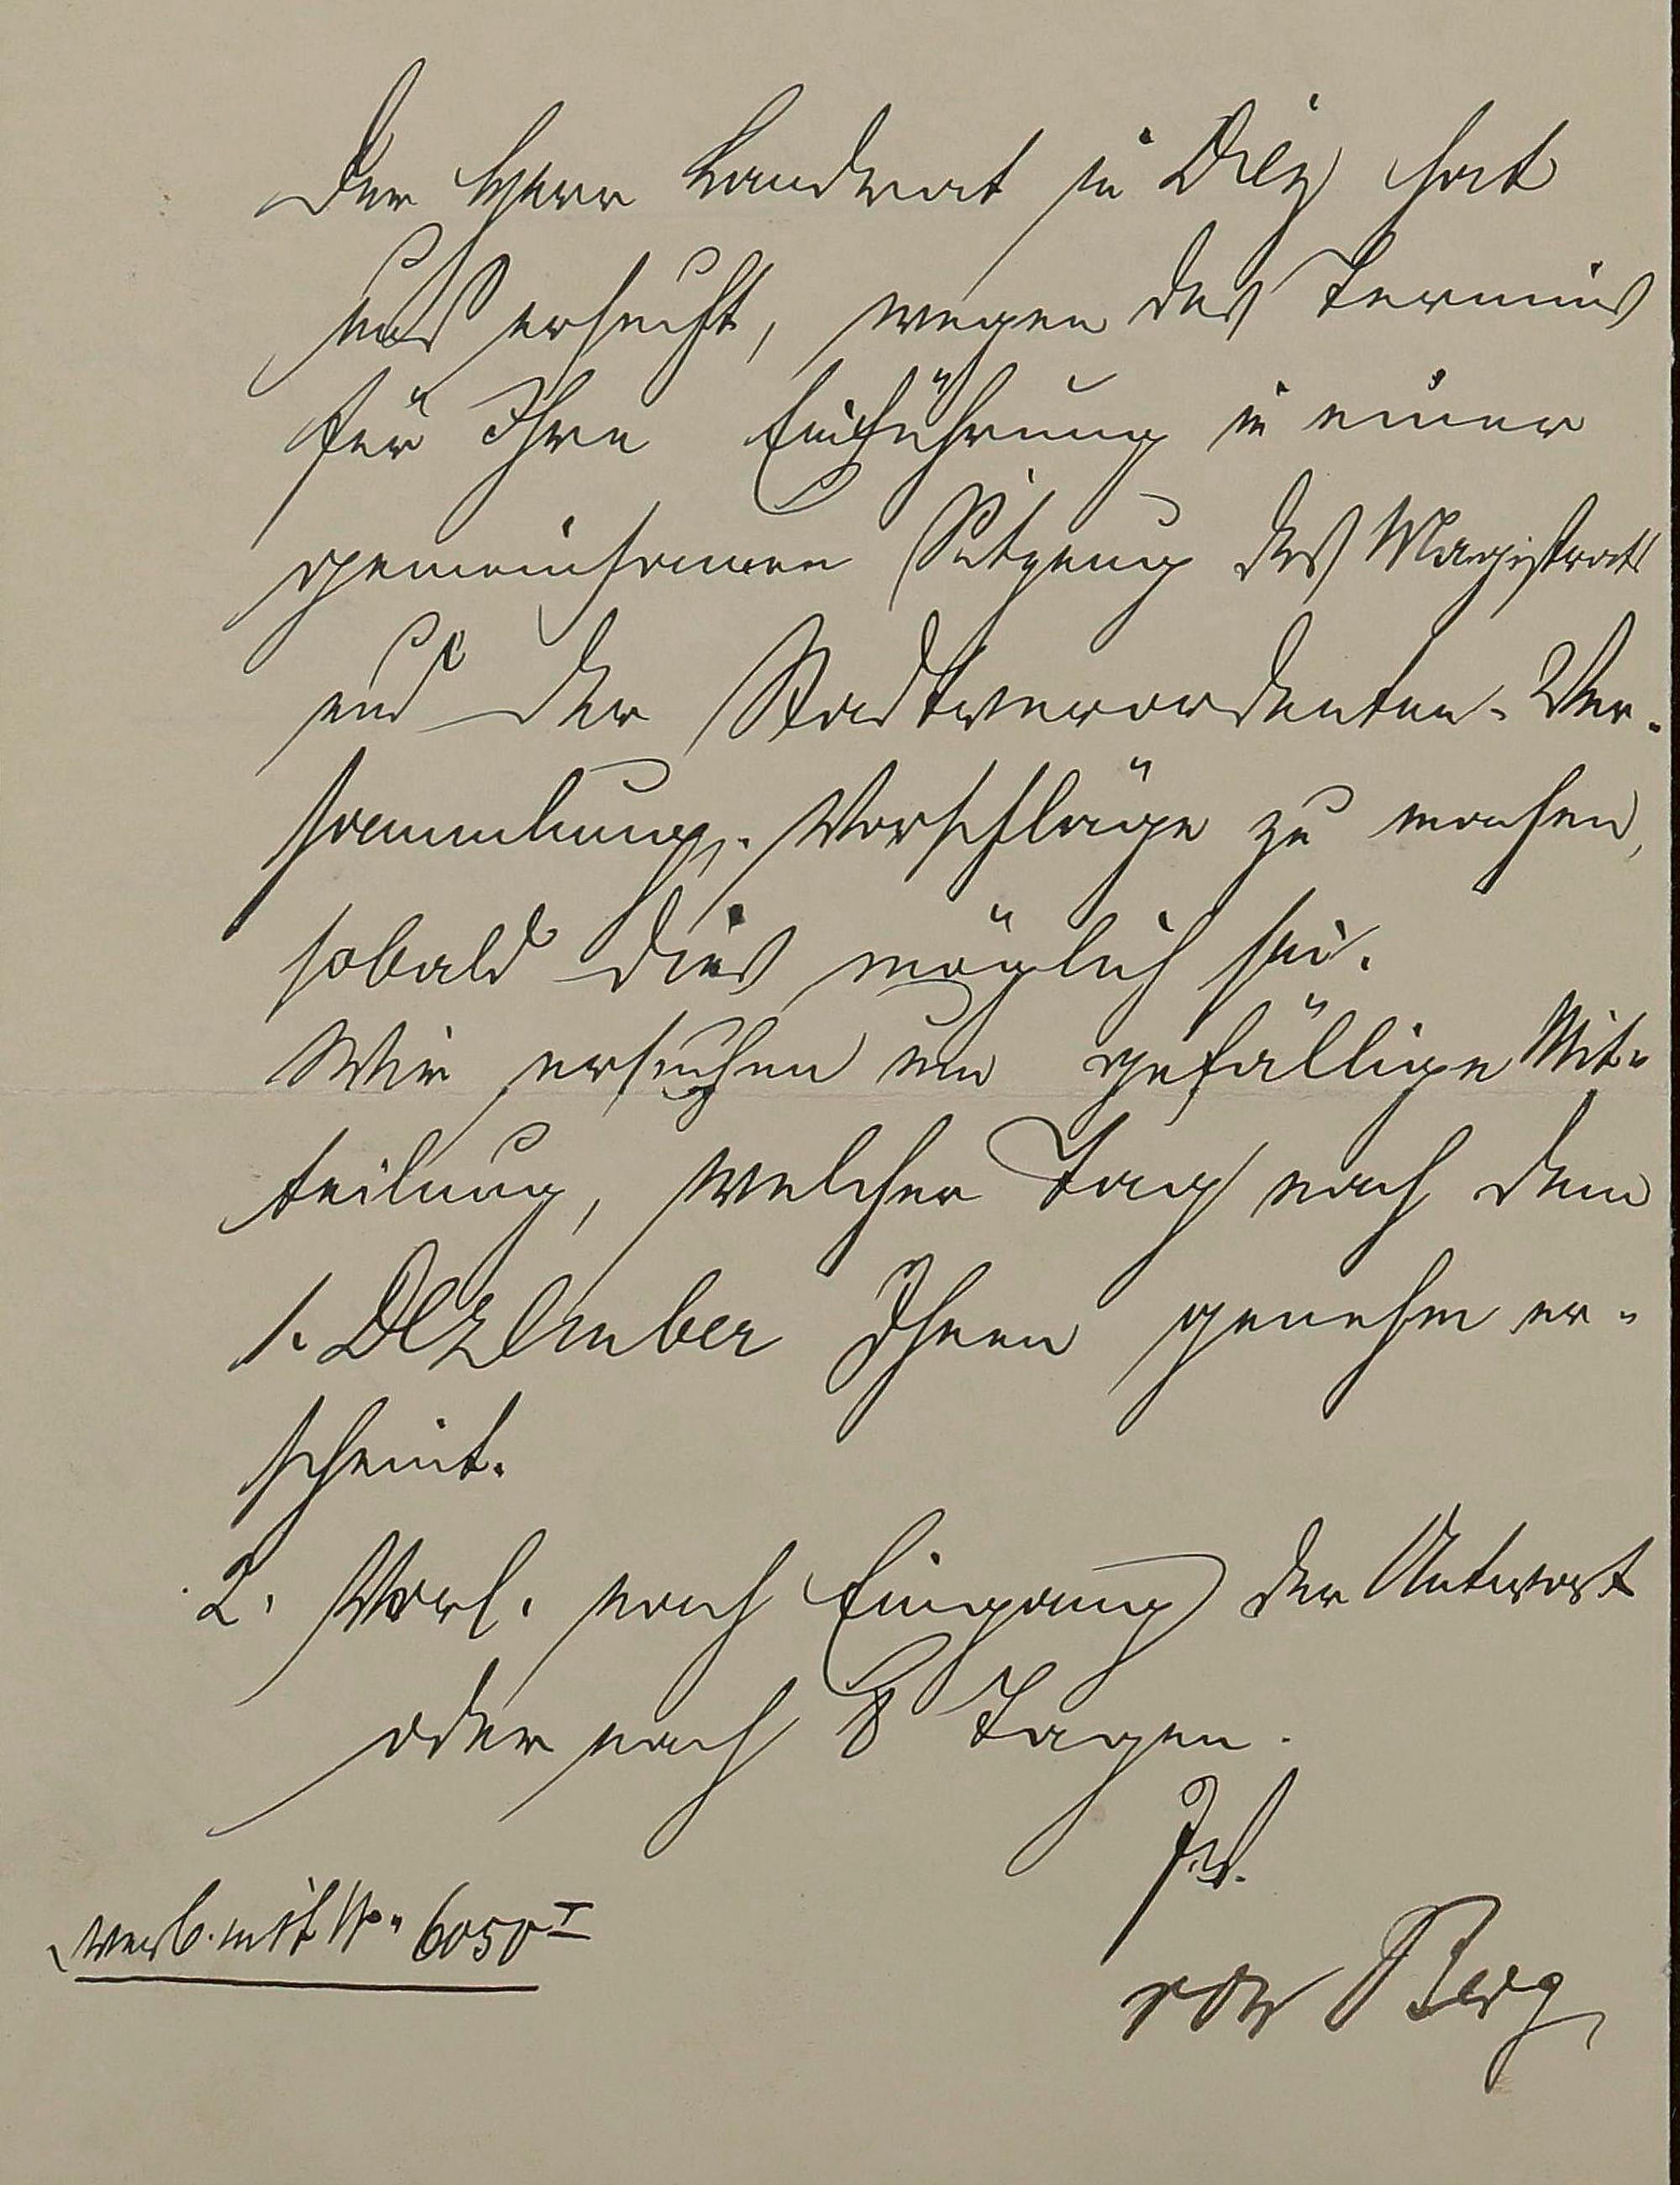 Der Herr Landrat in Diez hat
uns ersucht, wegen des Termins
für Ihre Einführung in einer
gemeinsamen Sitzung des Magistrats
und der Stadtverordneten-Ver-
sammlung Vorschläge zu machen,
sobald dies möglich sei.
Wir ersuchen um gefällige Mit-
teilung, welcher Tag nach dem
1. Dezember Ihnen genehm er-
scheint.
2. Vorl. nach Eingang der Antwort
oder nach 8 Tagen.
verb. mit No. 6050 I
von Berg